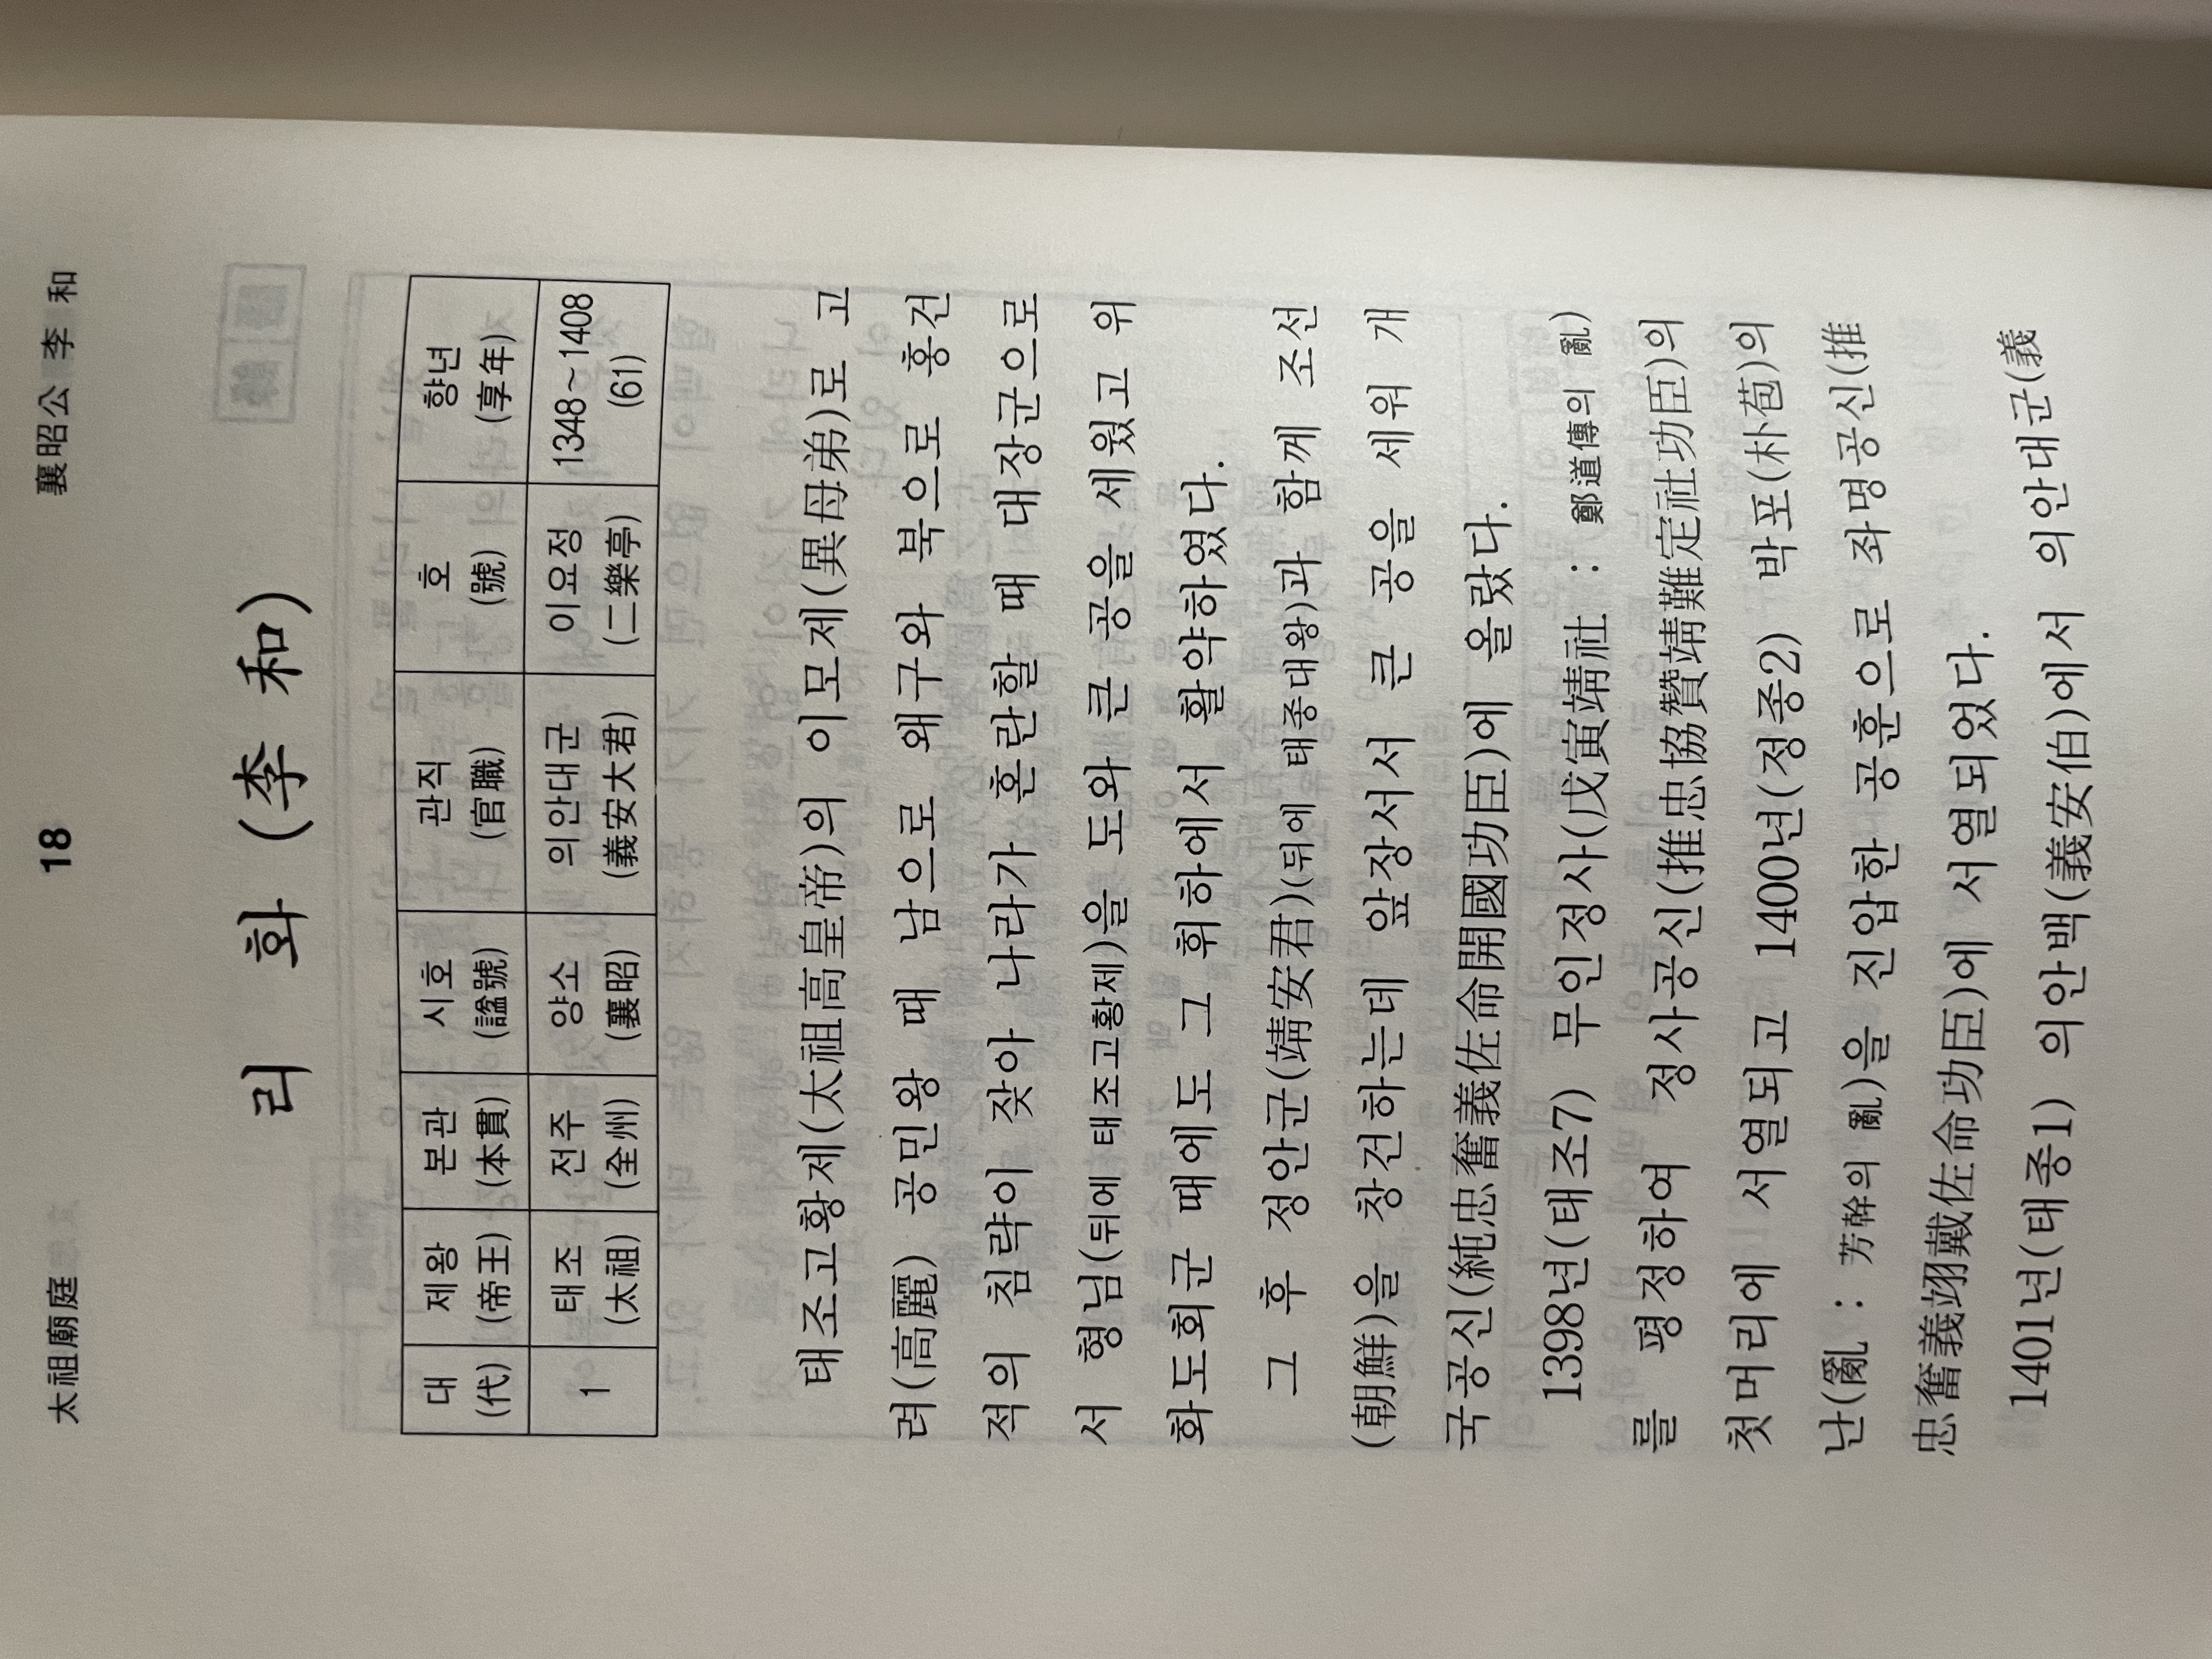 太祖廟庭 18 襄昭公 李 和
리 화 (李 和)
대 제왕 본관 시호 관직 호 향년
(代) (帝王) (本貫) (諡號) (官職) (號) (享年)
1 태조 전주 양소 의안대군 이요정 1348~1408
(太祖) (全州) (襄昭) (義安大君) (二樂亭) (61)
태조고황제(太祖高皇帝)의 이모제(異母弟)로 고
려(高麗) 공민왕 때 남으로 왜구와 북으로 홍건
적의 침략이 잦아 나라가 혼란할 때 대장군으로
서 형님(뒤에 태조고황제)을 도와 큰 공을 세웠고 위
화도회군 때에도 그 휘하에서 활약하였다.
그 후 정안군(靖安君)(뒤에 태종대왕)과 함께 조선
(朝鮮)을 창건하는데 앞장서서 큰 공을 세워 개
국공신(純忠奮義佐命開國功臣)에 올랐다.
1398년(태조7) 무인정사(戊寅靖社 : 鄭道傳의 亂)
를 평정하여 정사공신(推忠協贊靖難定社功臣)의
첫머리에 서열되고 1400년(정종2) 박포(朴苞)의
난(亂 : 芳幹의 亂)을 진압한 공훈으로 좌명공신(推
忠奮義翊戴佐命功臣)에 서열되었다.
1401년(태종1) 의안백(義安伯)에서 의안대군(義